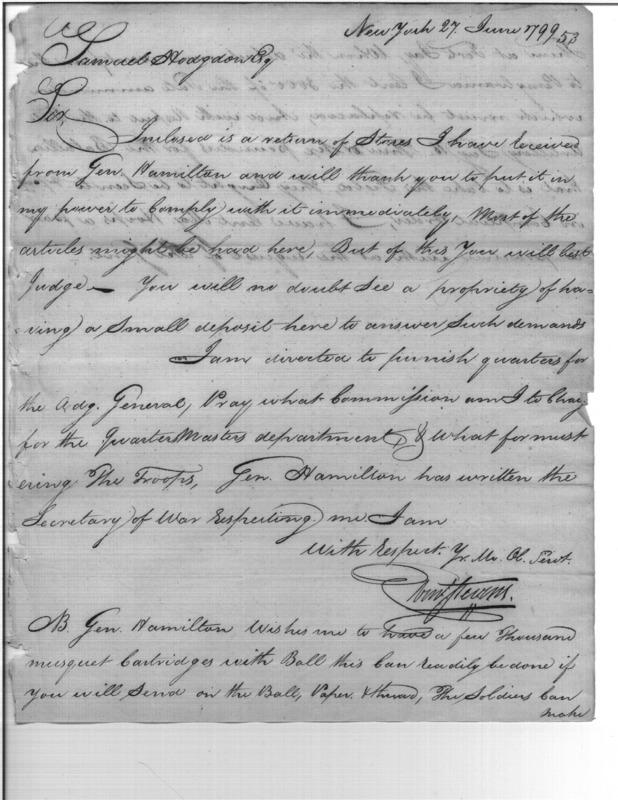 New York 27. June 1799
53
Samuel Hodgdon Esq
Sir,
Inclosed is a return of Stores I have received
from Gen. Hamilton and will thank you to put it in
my power to Comply with it immediately, Most of the
articles might be had here, But of this You will best
Judge — You will no doubt See a propriety of ha-
ving a Small deposit here to answer Such demands
I am directed to furnish quarters for
the Adj. General, Pray what Commission am I to Charg
for the Quarter Masters department, & What for must
ering The Troops, Gen. Hamilton has written the
Secretary of War Respecting me I am
With Respect. Yr. Mo. Ob. Servt.
Eben Stevens.
NB. Gen. Hamilton Wishes me to have a few Thousand
musquet Cartridges with Ball this Can readily be done if
you will Send on the Ball, Paper & thread, The Soldiers Can
make